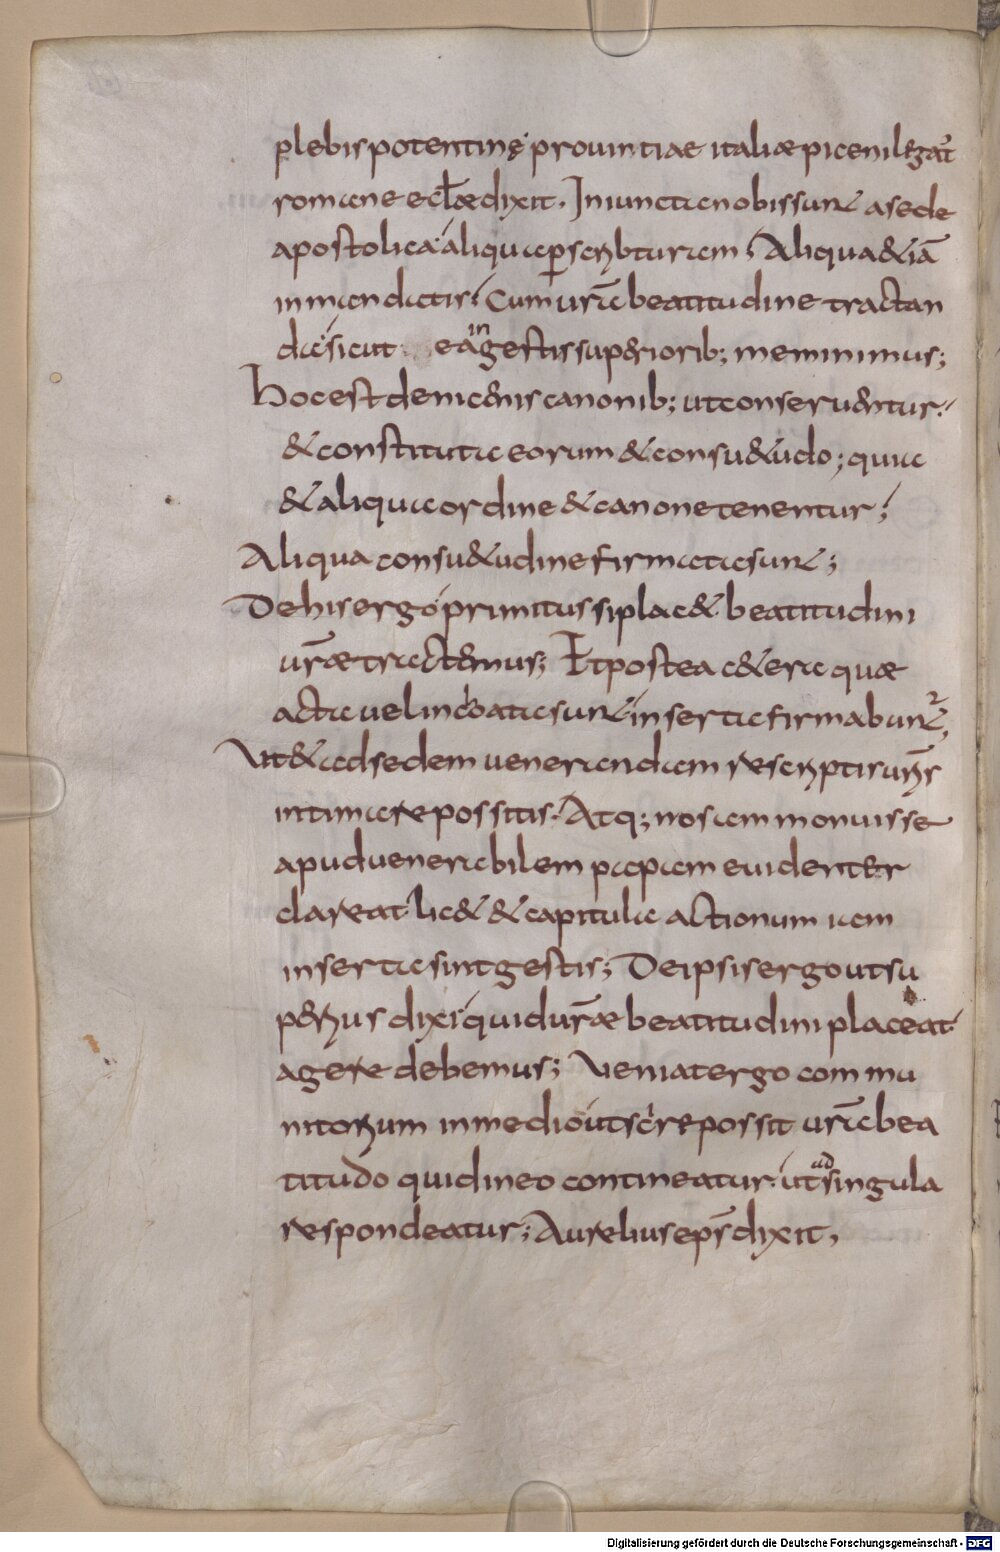 plebis potentinę prouintiae italiæ piceni legat᷒
romane eccl̄æ dixit. Iniuncta nobis sunt a sede
apostolica aliqua p̱ scribturam; Aliqua &iā
in mandatis; Cum urā beatitudine tractan
da sicut ea in gestis superiorib; meminimus;
Hoc est de nicenis canonib; ut conseruentur.
& constituta eorum & consu&udo; quia
& aliqua ordine & canone tenentur;
Aliqua consu&udine firmata sunt;
De his ergo primitus si plac& beatitudini
urǣ tractemus; Et postea c&era quæ
acta uel incoata sunt inserta firmabunt᷒,
Ut & ad sedem uenerandam rescriptis ur̄is
intimare possitis. Atq; nos ammonuisse
apud uenerabilem papam euidenter
clareat lic& & capitula actionum iam
inserta sint gestis; De ipsis ergo ut su
perius dixi quid urǣ beatitudini placeat
agere debemus; Ueniat ergo commu
nitorium in medio ut scire possit urā bea
titudo quid in eo contineatur. ut ad singula
respondeatur; Aurelius ep̄s dixit,
Digitalisierung gefördert durch die Deutsche Forschungsgemeinschaft - DFG